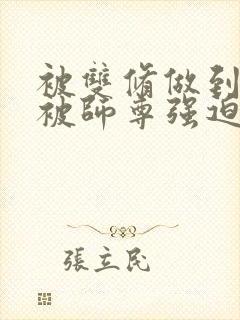 被雙脩做到
被師尊强迫
張立民